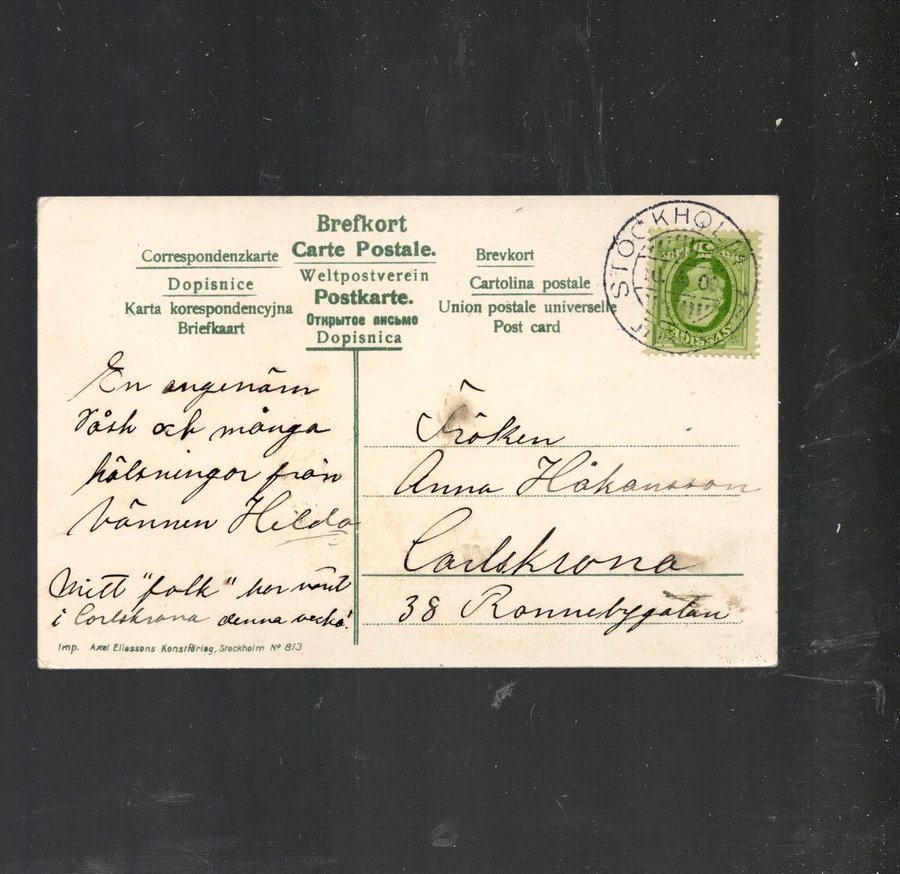 Brefkort
Carte Postale.
Correspondenzkarte
Weltpostverein
Brevkort
Dopisnice
Postkarte.
Cartolina postale
Karta korespondencyjna
Открытое письмо
Union postale universelle
Briefkaart
Dopisnica
Post card
STOCKHOLM
En angenäm
Påsk och många
hälsningar från
Vännen Hilda
Mitt "folk" har varit
i Carlskrona denna vecka!
Fröken
Anna Håkansson
Carlskrona
38 Ronnebygatan
Imp. Axel Eliassons Konstförlag, Stockholm No 813